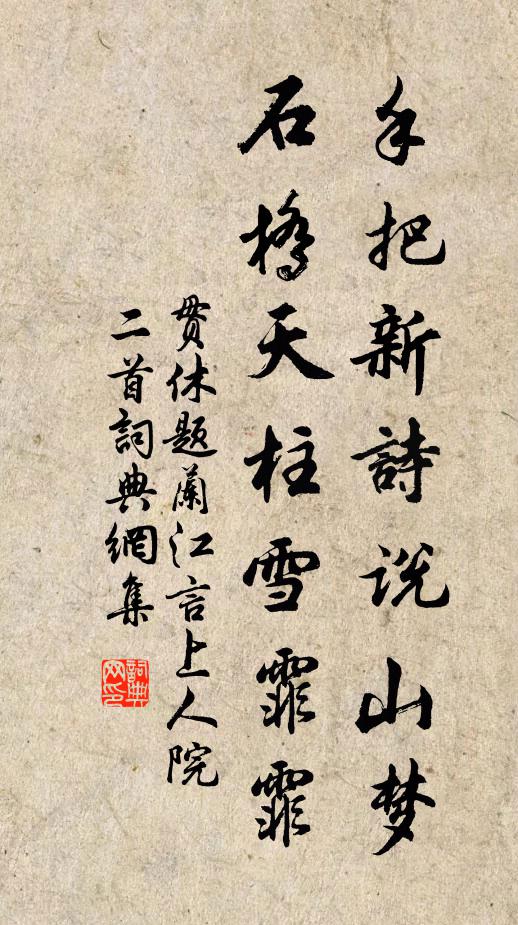 手把新詩说山梦
石橋天柱雪霏霏
贯休题蘭江言上人院
二首詞典網集
詞典网印